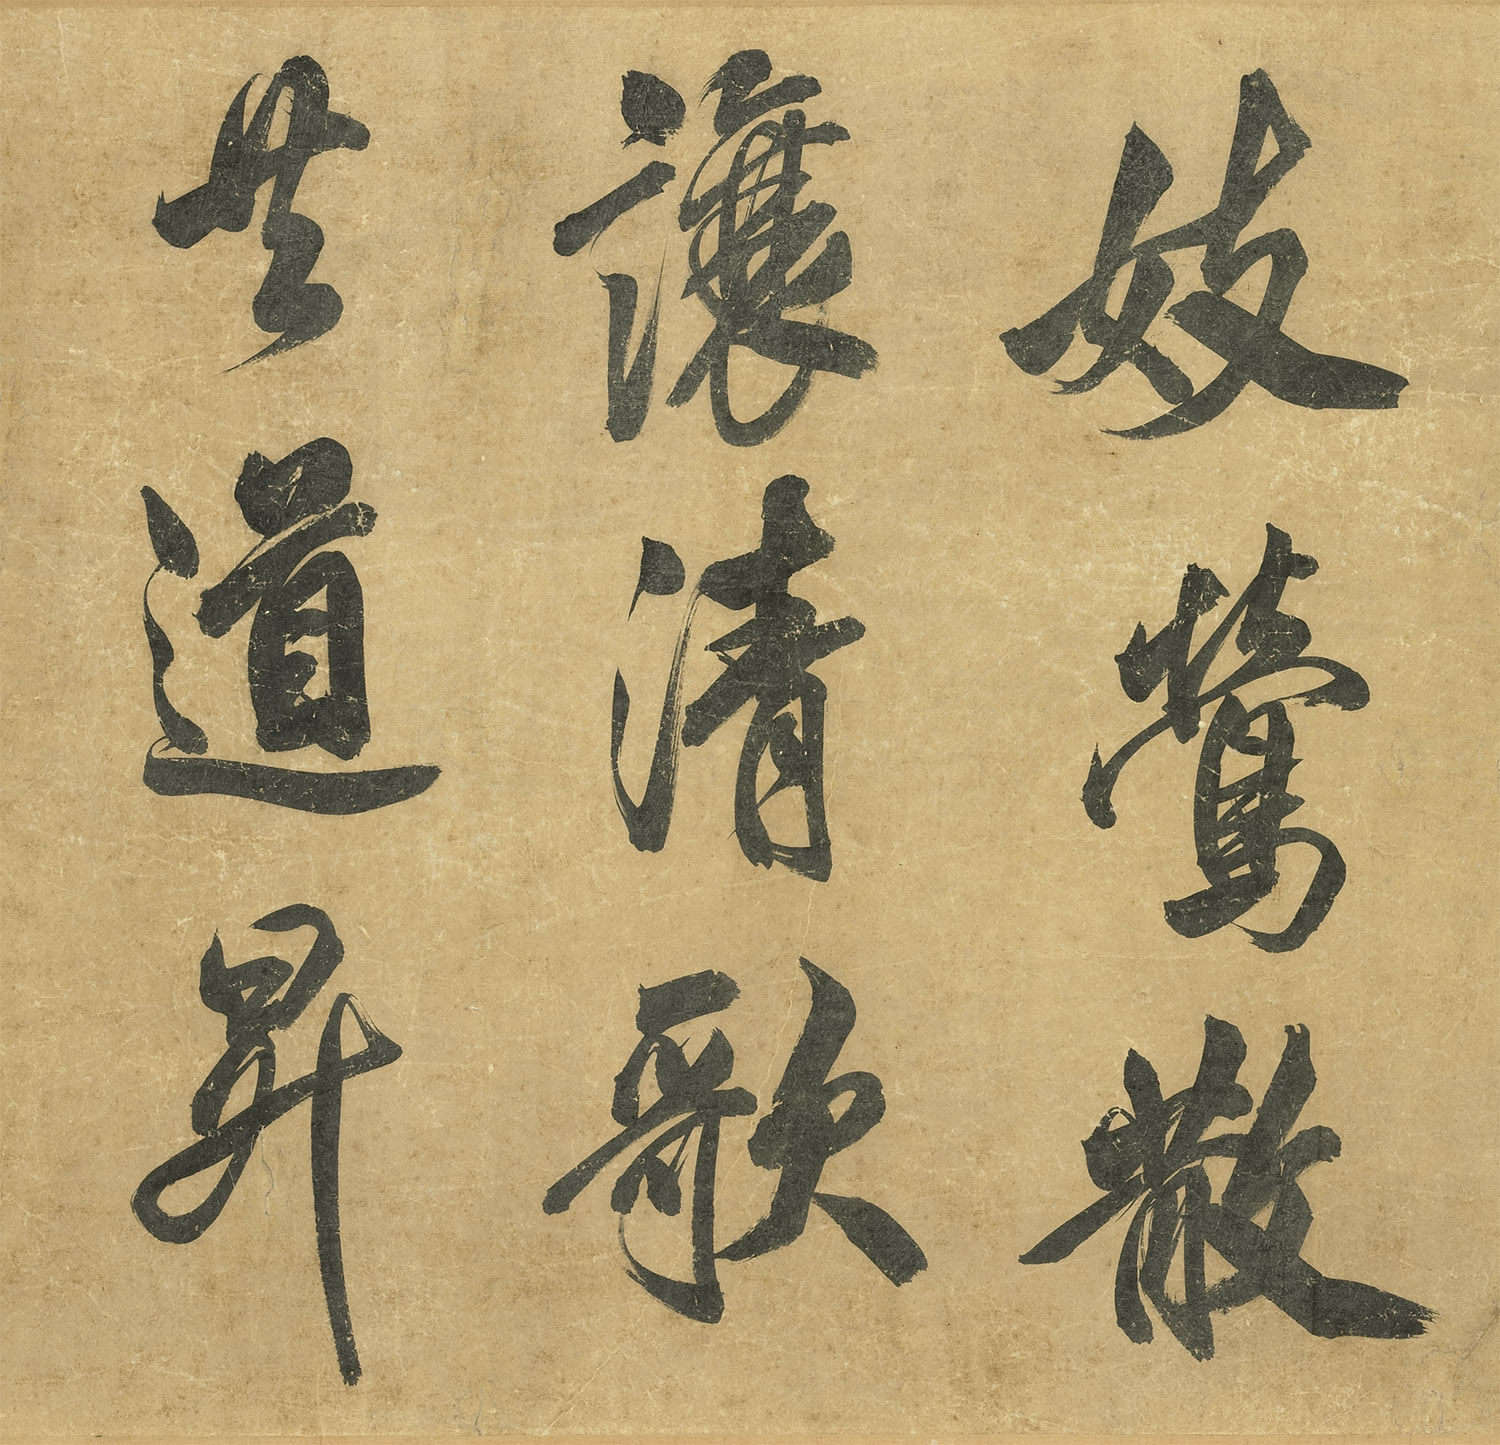 妓鶯散
讓清歌
共道昇